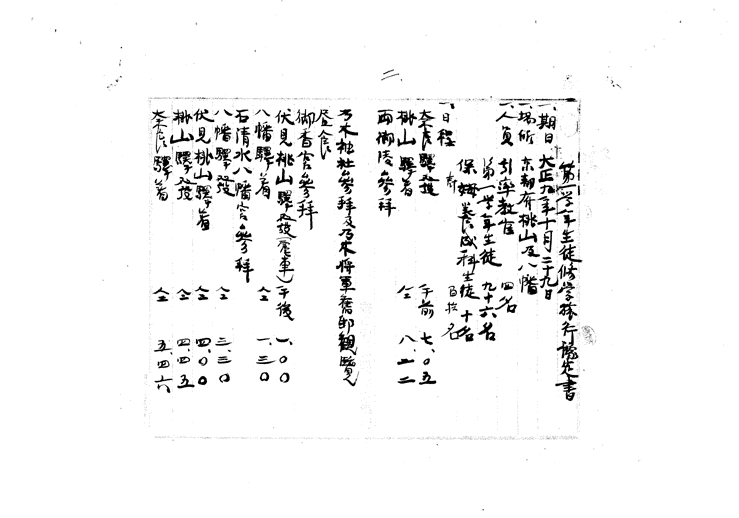 二
第一学年生徒修学旅行豫定書
一、期日 大正九年十月二十九日
一、場所 京都府桃山及八幡
一、人員 引率教官 四名
第一学年生徒 九十六名
保姆養成科生徒 十名
一、日程
奈良驛發 午前 七、〇五
桃山驛着 仝 八、二二
両御陵参拝
乃木神社参拝及乃木将軍舊邸観覧
昼食
御香宮参拝
伏見桃山驛發(電車) 午後 一、〇〇
八幡驛着 仝 一、三〇
石清水八幡宮参拝
八幡驛發 仝 三、三〇
伏見桃山驛着 仝 四、〇〇
桃山驛發 仝 四、四五
奈良驛着 仝 五、四六